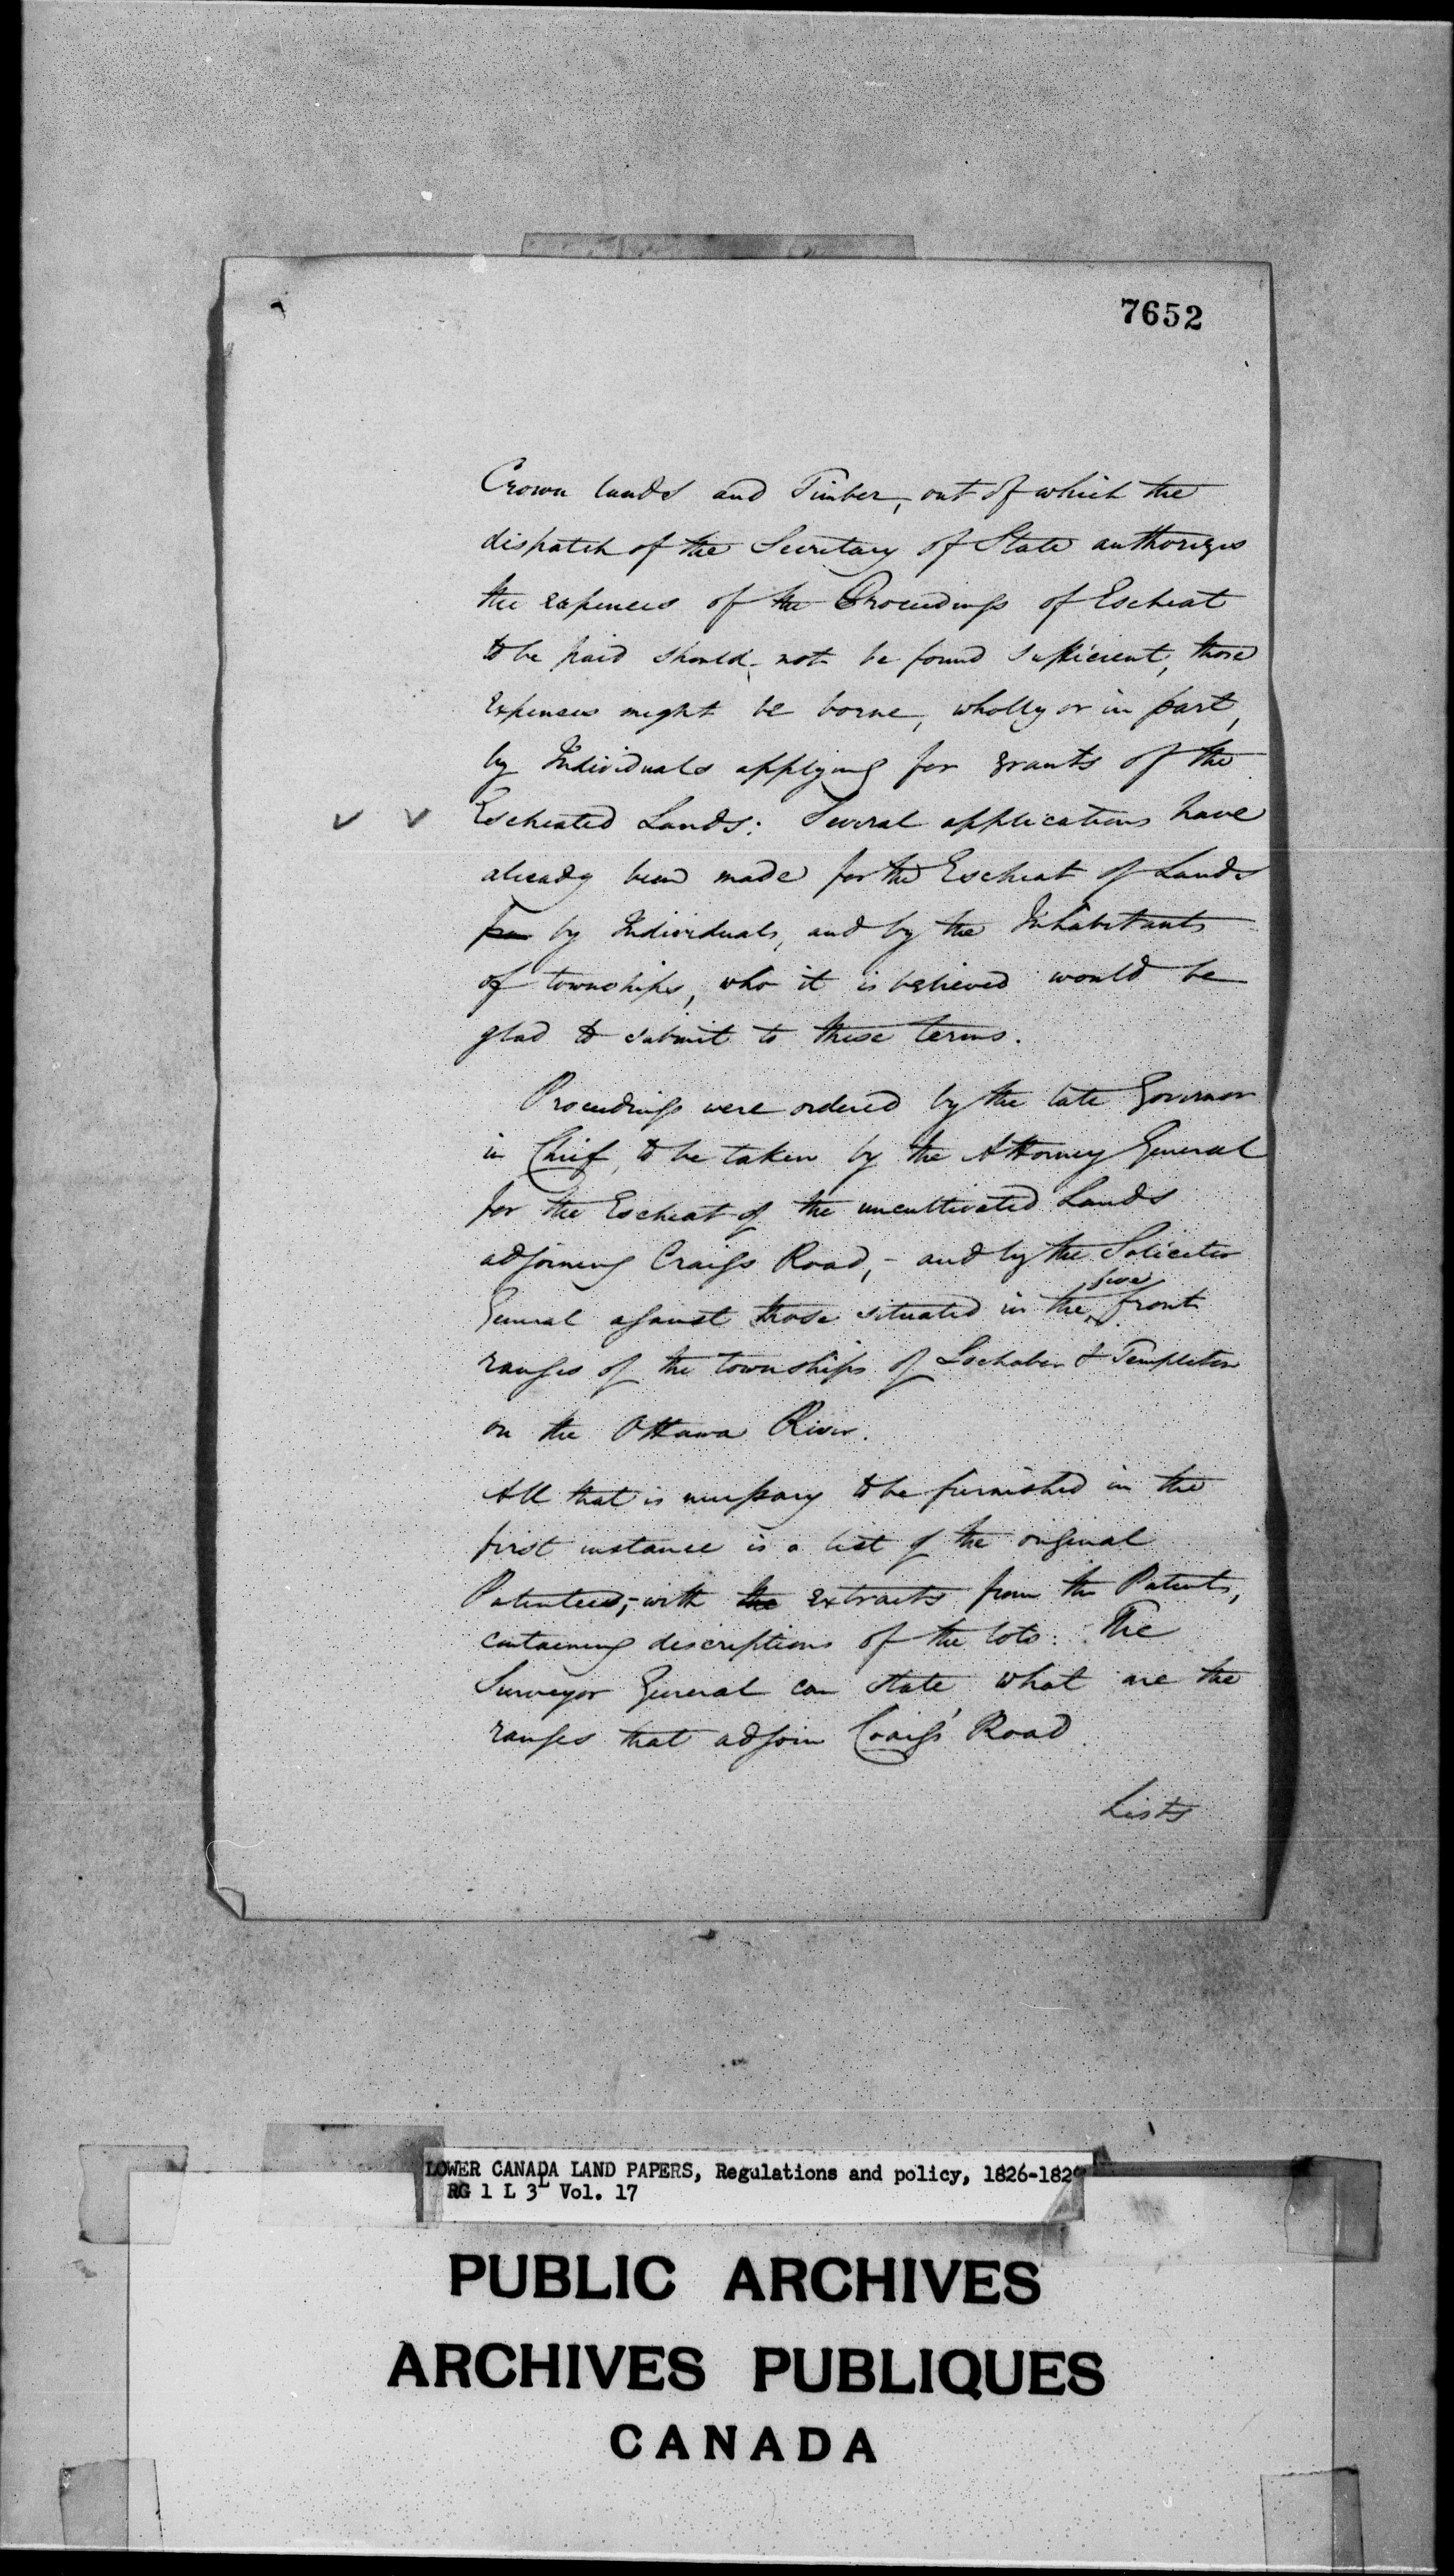 7652
Crown lands and Timber, out of which the
dispatch of the Secretary of State authorizes
the expences of the Proceedings of Escheat
to be paid should, not be found sufficient, those
expences might be borne, wholly or in part,
by Individuals applying for grants of the
Escheated Lands: Several applications have
already been made for the Escheat of Lands
by Individuals, and by the Inhabitants
of townships, who it is believed would be
glad to submit to these terms.
Proceedings were ordered by the late Governor
in Chief, to be taken by the Attorney General
for the Escheat of the uncultivated Lands
adjoining Craigs Road, - and by the Solicitor
five
General against those situated in the front
ranges of the townships of Lochaber & Templeton
on the Ottawa River.
All that is necessary to be furnished in the
first instance is a list of the original
Patentees, - with the extracts from the Patents,
containing descriptions of the lots: The
Surveyor General can state what are the
ranges that adjoin Craigs' Road.
Lists
LOWER CANADA LAND PAPERS, Regulations and policy, 1826-182
RG 1 L 3L Vol. 17
PUBLIC ARCHIVES
ARCHIVES PUBLIQUES
CANADA